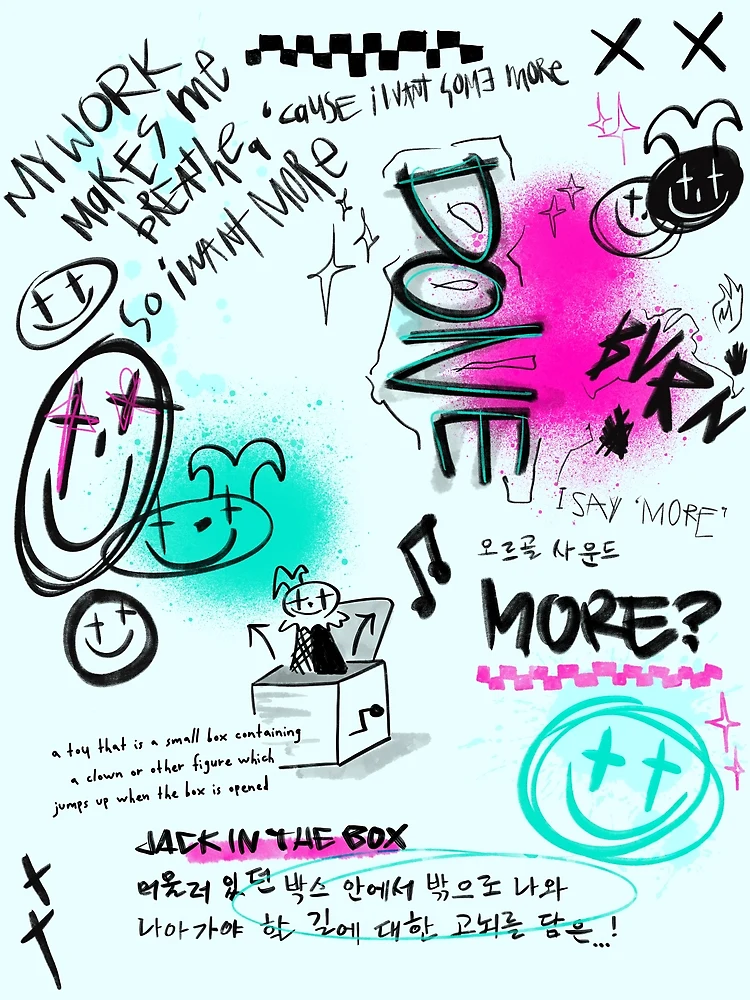 MY WORK
MAKES ME
BREATHE,
SO I WANT MORE
'CAUSE I WANT SOME MORE
DONE
BURN
I SAY 'MORE"
오르골 사운드
MORE?
a toy that is a small box containing
a clown or other figure which
jumps up when the box is opened
JACK IN THE BOX
머물러 있던 박스 안에서 밖으로 나와
나아가야 할 길에 대한 고뇌를 담은...!